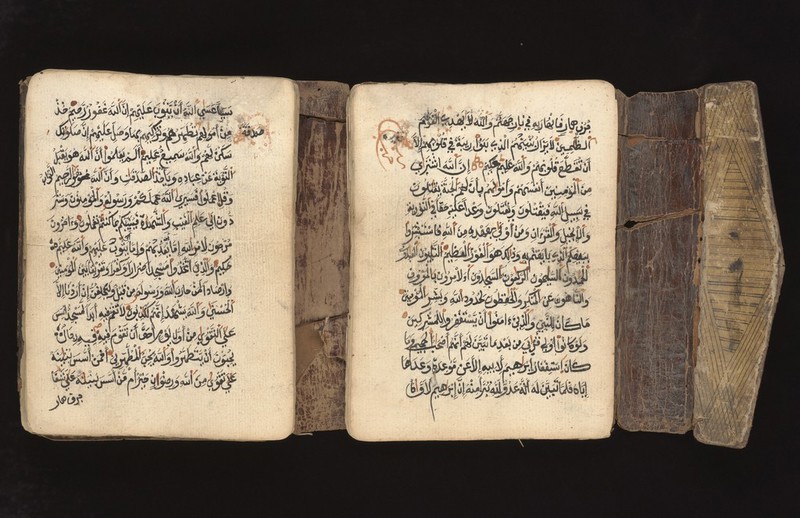 سيئا عسى الله ان يتوب عليهم ان الله غفور رحيم خذ
من امولهم صدقة تطهرهم وتزكيهم بها وصل عليهم ان صلوتك
سكن لهم والله سميع عليم الم يعلموا ان الله هو يقبل
التوبة عن عباده وياخذ الصدقت وان الله هو التواب الرحيم
وقل اعملوا فسيرى الله عملكم ورسوله والمومنون وستر
دون الى علم الغيب والشهدة فينبئكم بما كنتم تعملون واخرون
مرجون لامر الله اما يعذبهم واما يتوب عليهم والله عليم
حكيم والذين اتخذوا مسجدا ضرارا وكفرا وتفريقا بين المومنين
وارصادا لمن حارب الله ورسوله من قبل وليحلفن ان اردنا الا
الحسنى والله يشهد انهم لكذبون لا تقم فيه ابدا لمسجد اسس
على التقوى من اول يوم احق ان تقوم فيه فيه رجال
يحبون ان يتطهروا والله يحب المطهرين افمن اسس بنينه
على تقوى من الله ورضوان خير ام من اسس بنينه على شفا
جرف هار
جرف هار فانهار به في نار جهنم والله لا يهدي القوم
الظلمين لا يزال بنينهم الذي بنوا ريبة في قلوبهم الا
ان تقطع قلوبهم والله عليم حكيم ان الله اشترى
من المومنين انفسهم وامولهم بان لهم الجنة يقتلون
في سبيل الله فيقتلون ويقتلون وعدا عليه حقا في التورية
والانجيل والقران ومن اوفى بعهده من الله فاستبشروا
ببيعكم الذي بايعتم به وذلك هو الفوز العظيم التئبون العبدون
الحمدون السئحون الركعون السجدون الامرون بالمعروف
والناهون عن المنكر والحفظون لحدود الله وبشر المومنين
ما كان للنبي والذين ءامنوا ان يستغفروا للمشركين
ولو كانوا اولي قربى من بعد ما تبين لهم انهم اصحب الجحيم وما
كان استغفار ابرهيم لابيه الا عن موعدة وعدها
اياه فلما تبين له انه عدو لله تبرا منه ان ابرهيم لاواه